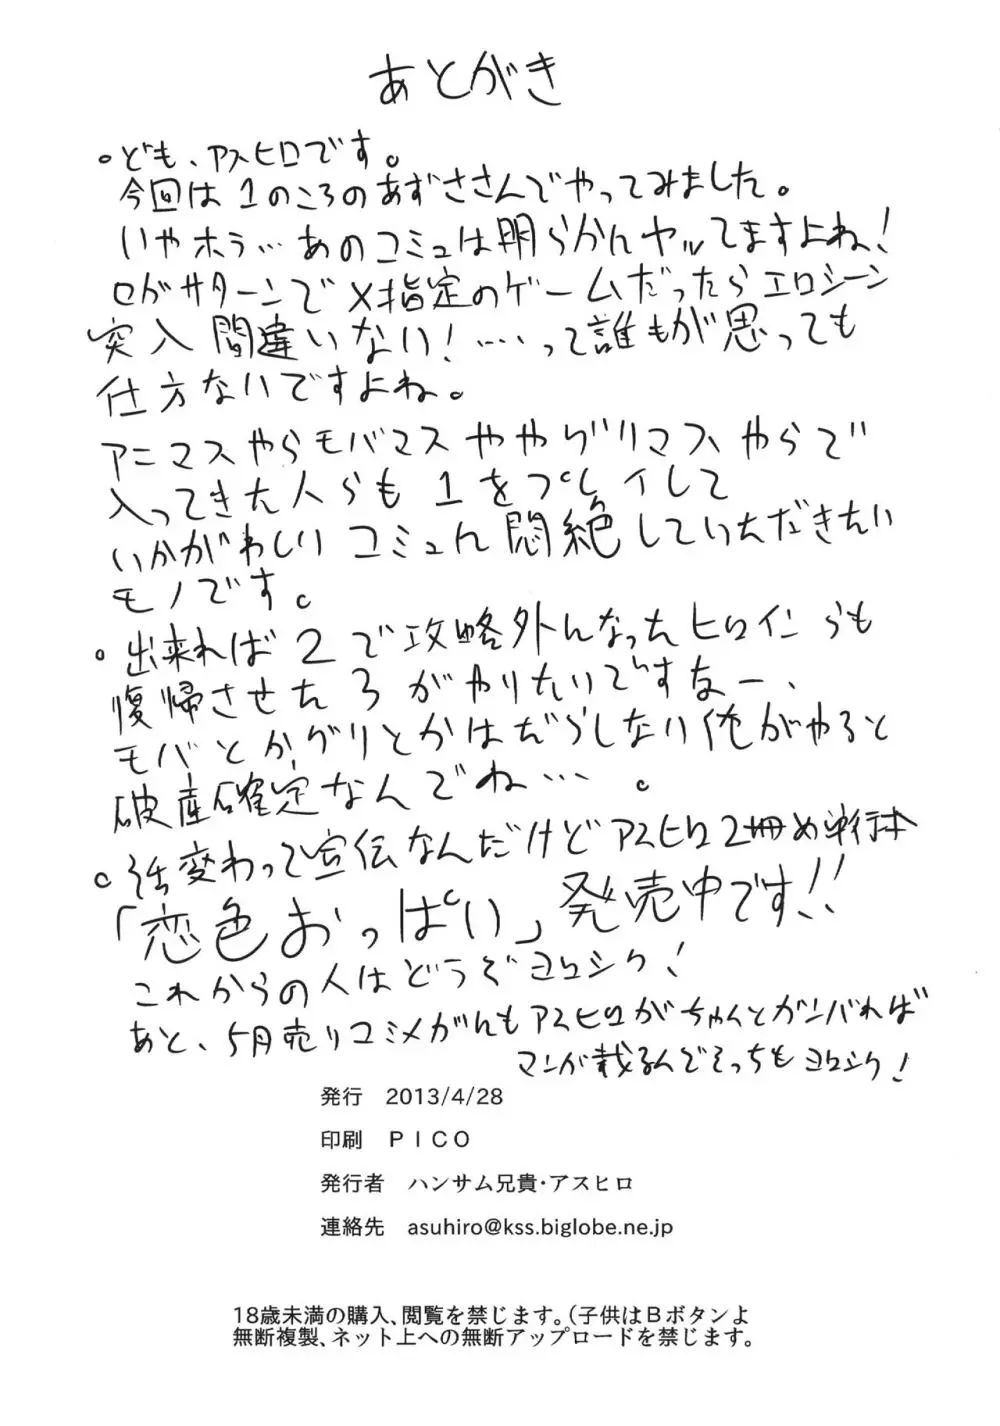 あとがき
。ども、アスヒロです。
今回は1のころのあずささんでやってみました。
いやホラ…あのコミュは明らかにヤッてますよね!
ロがサターンでX指定のゲームだったらエロシーン
突入間違いない!……って誰もが思っても
仕方ないですよね。
アニマスやらモバマスややグリマスやらで
入ってきた人らも1をプレイして
いかがわしいコミュに悶絶していただきたい
モノです。
。出来れば2で攻略外になったヒロインらも
復帰させた3がやりたいですなー、
モバとかグリとかはだらしない俺がやると
破産確定なんでね…。
。話変わって宣伝なんだけどアスヒロ2冊め単行本
「恋色おっぱい」発売中です!!
これからの人はどうぞヨロシク!
あと、5月売りコミメガにもアスヒロがちゃんとガンバれば
マンガ載るんでそっちもヨロシク!
発行 2013/4/28
印刷 PICO
発行者 ハンサム兄貴・アスヒロ
連絡先 asuhiro@kss.biglobe.ne.jp
18歳未満の購入、閲覧を禁じます。(子供はBボタンよ
無断複製、ネット上への無断アップロードを禁じます。